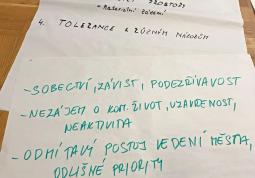 - materiální zázemí
4. TOLERANCE K RŮZNÝM NÁZORŮM
- SOBECTVÍ, ZÁVIST, PODEZŘÍVAVOST
- NEZÁJEM O KOM. ŽIVOT, UZAVŘENOST,
NEAKTIVITA
- ODMÍTAVÝ POSTOJ VEDENÍ MĚSTA,
ODLIŠNÉ PRIORITY